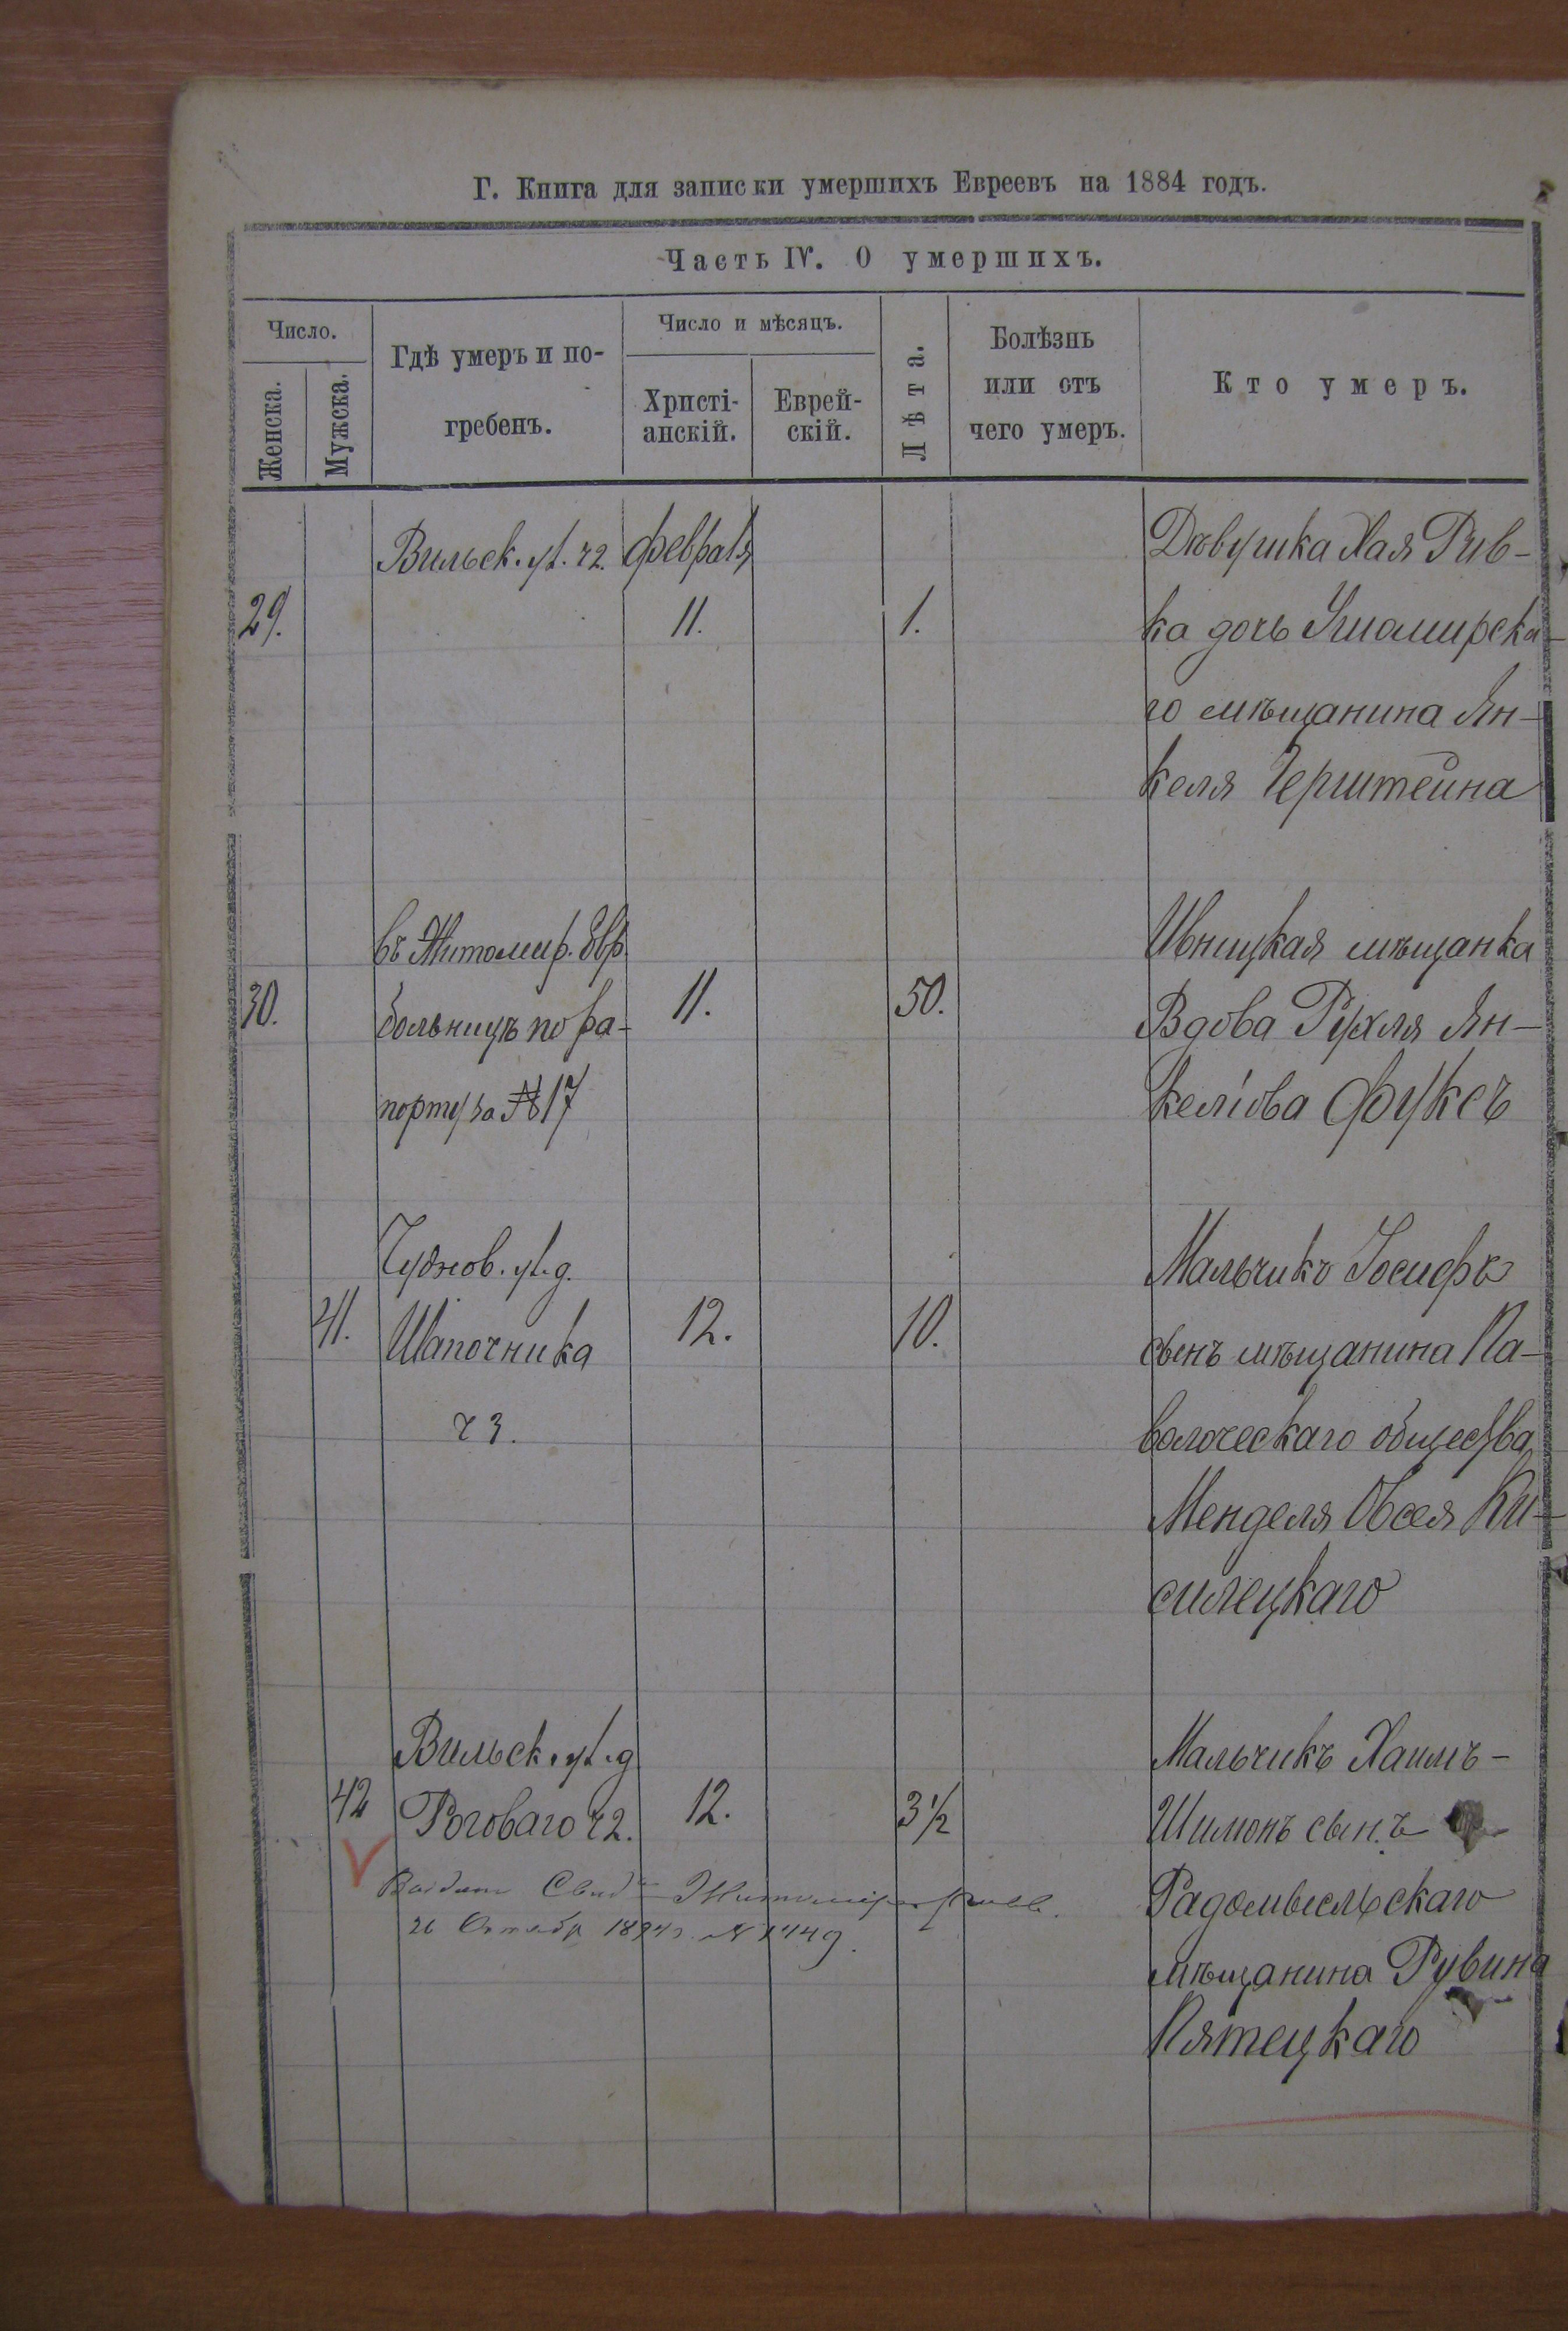 Г. Книга для записки умершихъ Евреевъ на 1884 годъ.
Часть IV. О умершихъ.
Число.
Женска.
Мужска.
Гдѣ умеръ и по-
гребенъ.
Число и мѣсяцъ.
Христі-
анскій.
Еврей-
скій.
Лѣта.
Болѣзнь
или отъ
чего умеръ.
Кто умеръ.
29.
Вильск. ул. ч2.
февраля
11.
1.
Дѣвушка Хая Рив-
ка дочь Ушомирска-
го мѣщанина Ян-
келя Герштейна
30.
въ Житомир. Евр.
больницѣ по ра-
порту за № 17
11.
50.
Ивницкая мѣщанка
Вдова Рухля Ян-
келіова Фуксъ
41.
Чуднов. ул. д.
Шапочника
ч 3.
12.
10.
Мальчикъ Іосифъ
сынъ мѣщанина Па-
волоческаго общества
Менделя Овсея Ки-
силецкаго
42
Вильск. ул. д
Роговаго ч2.
12.
3 1/2
Мальчикъ Хаимъ-
Шимонъ сынъ
Радомысльскаго
мѣщанина Рувина
Пятецкаго
Выдано Свид
26 Октябр 1894 г. № 1449.